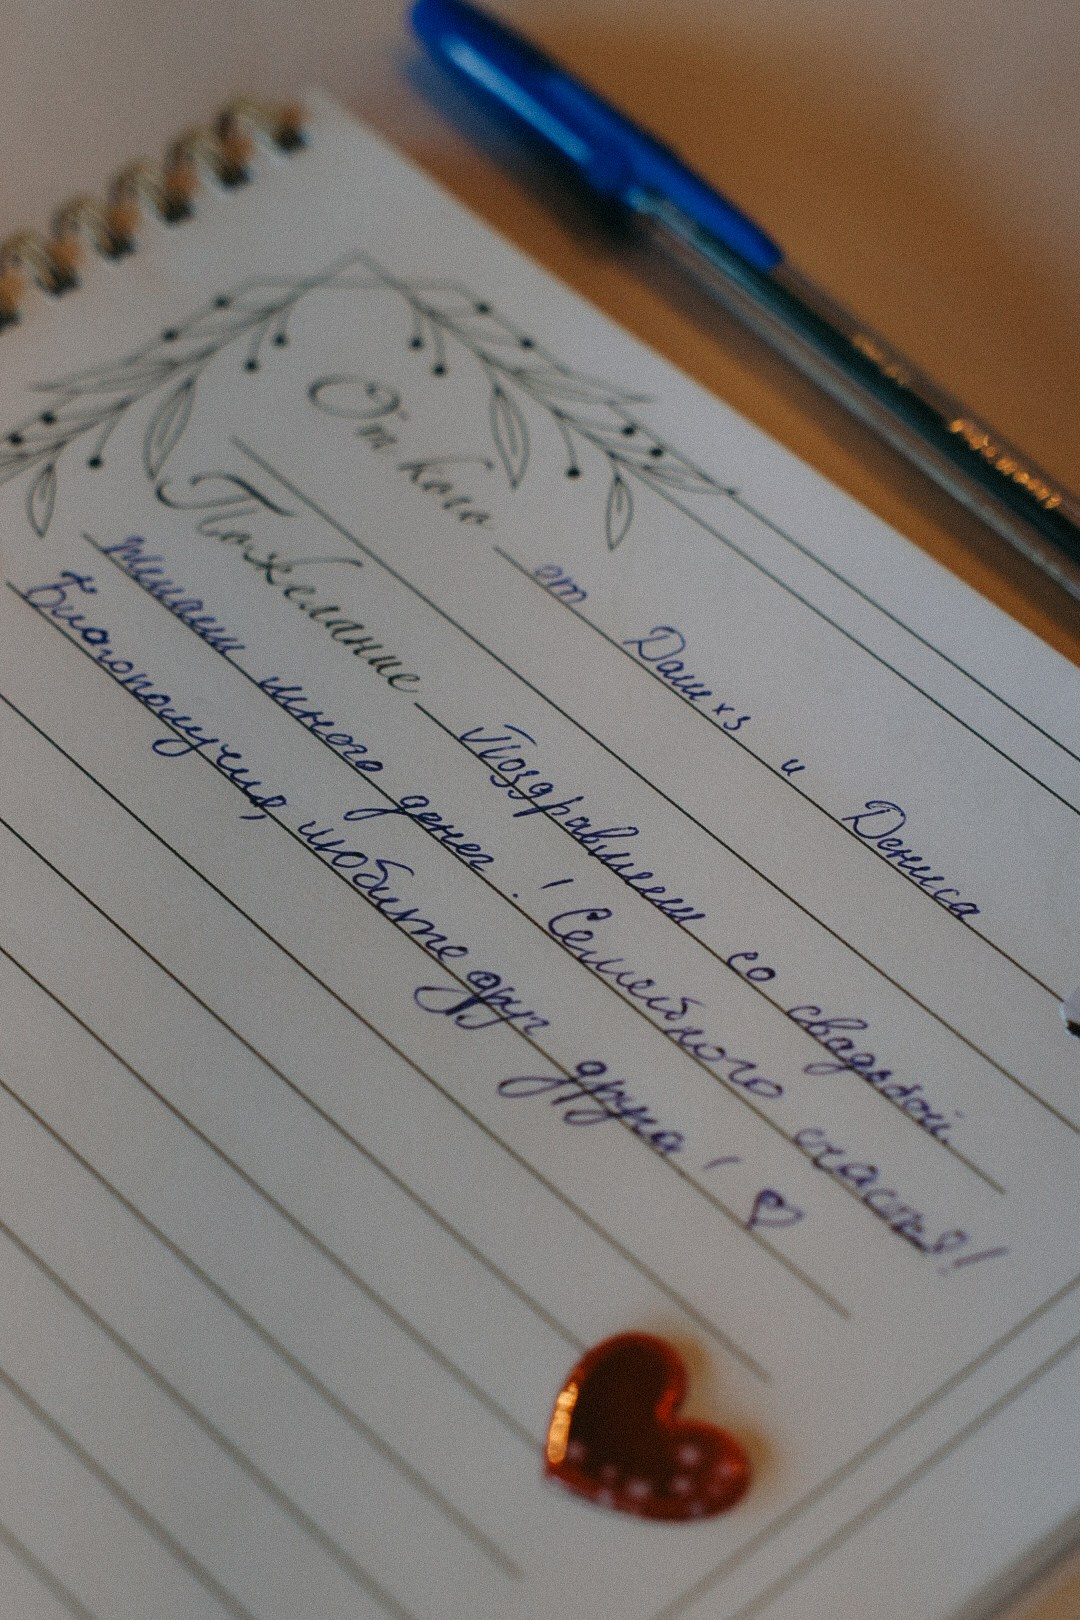 От кого от Даши х3 и Дениса
Пожелание Поздравляем со свадьбой.
желаем много денег! Семейного счастья!
Благополучия, любите друг друга! ♡